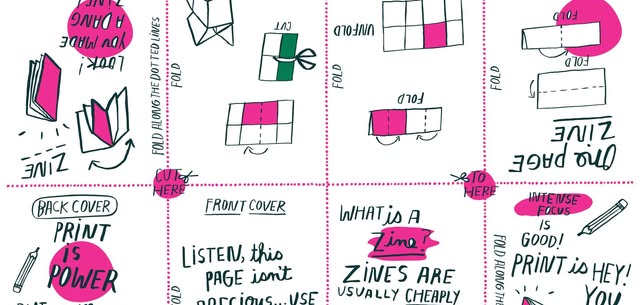 LOOK!
YOU MADE
A DANG
ZINE!
ZINE
FOLD ALONG THE DOTTED LINES
FOLD
CUT
FOLD
UNFOLD
FOLD
FOLD
FOLD
One PAGE
ZINE
CUT
HERE
TO
HERE
BACK COVER
PRINT
is
POWER
FRONT COVER
LISTEN, this
PAGE isn't
PRECIOUS... USE
FOLD
WHAT is A
Zine?
ZINES ARE
USUALLY CHEAPLY
FOLD ALONG THE
INTENSE
FOCUS
IS
GOOD!
PRINT is HEY!
YOU